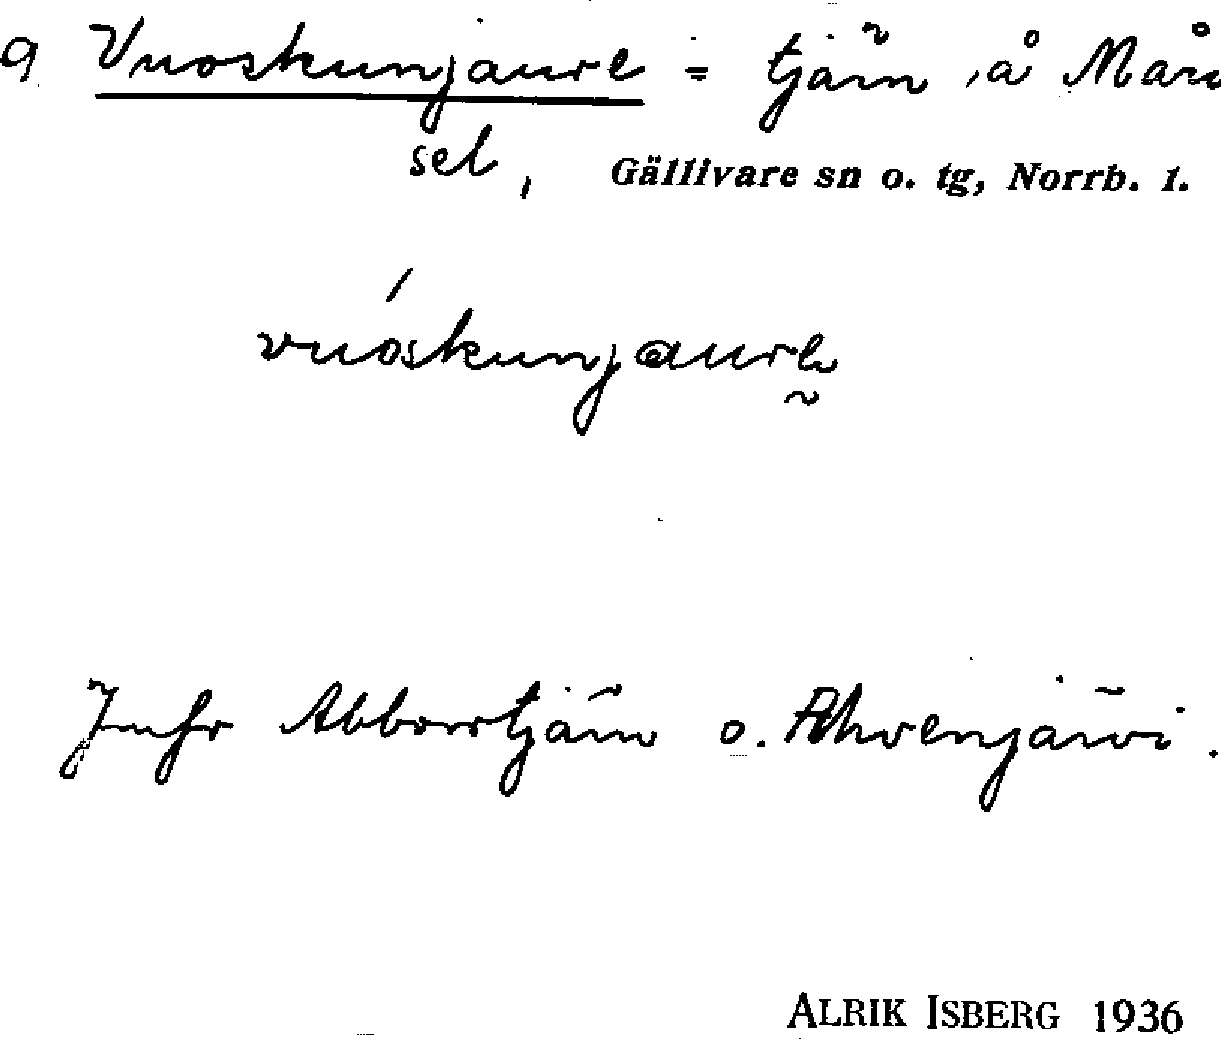 a Vuoskunjaure = tjärn å
sel, Gällivare sn o. tg, Norrb. l.
vuoskunjaure
Abborrtjärn o. Ahvenjärvi.
ALRIK ISBERG 1936